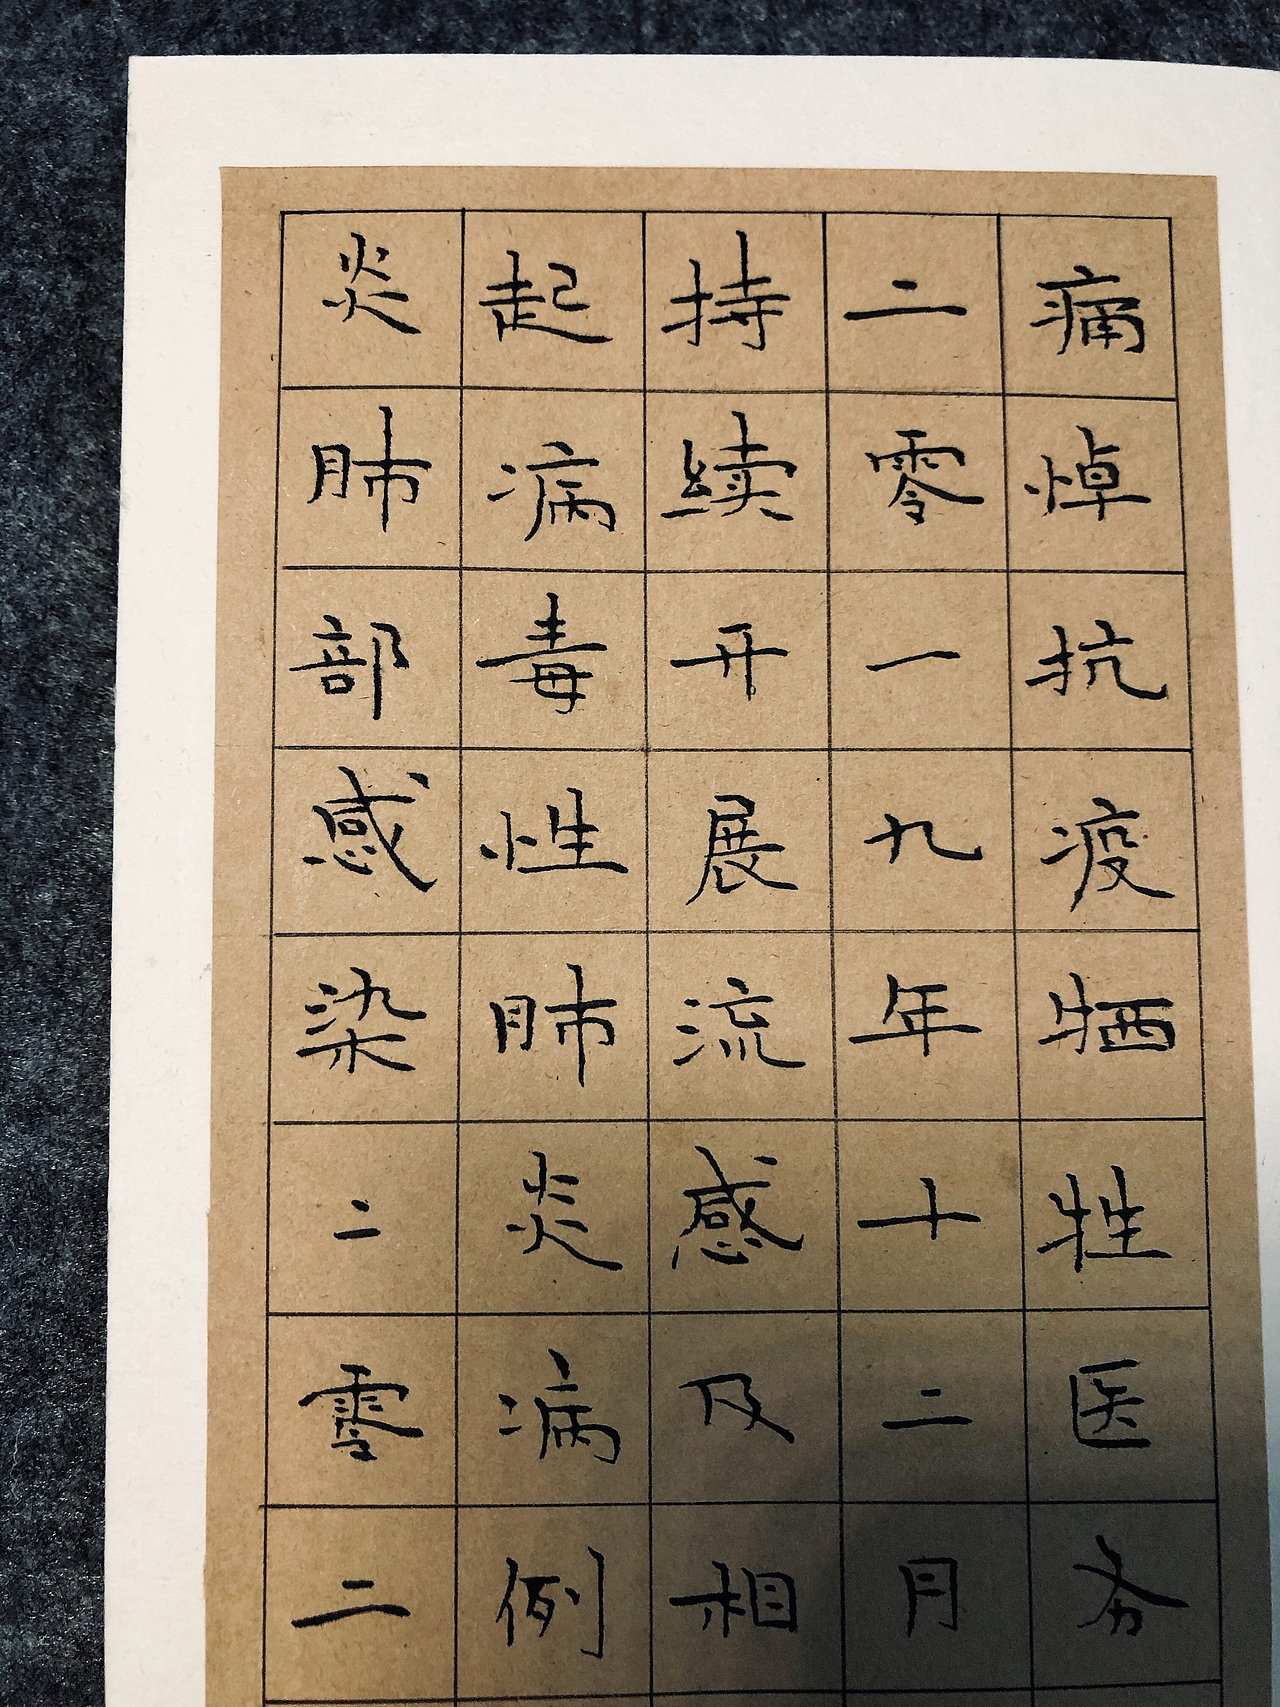 痛悼抗疫牺牲医务
二零一九年十二月
持续开展流感及相
起病毒性肺炎病例
炎肺部感染二零二